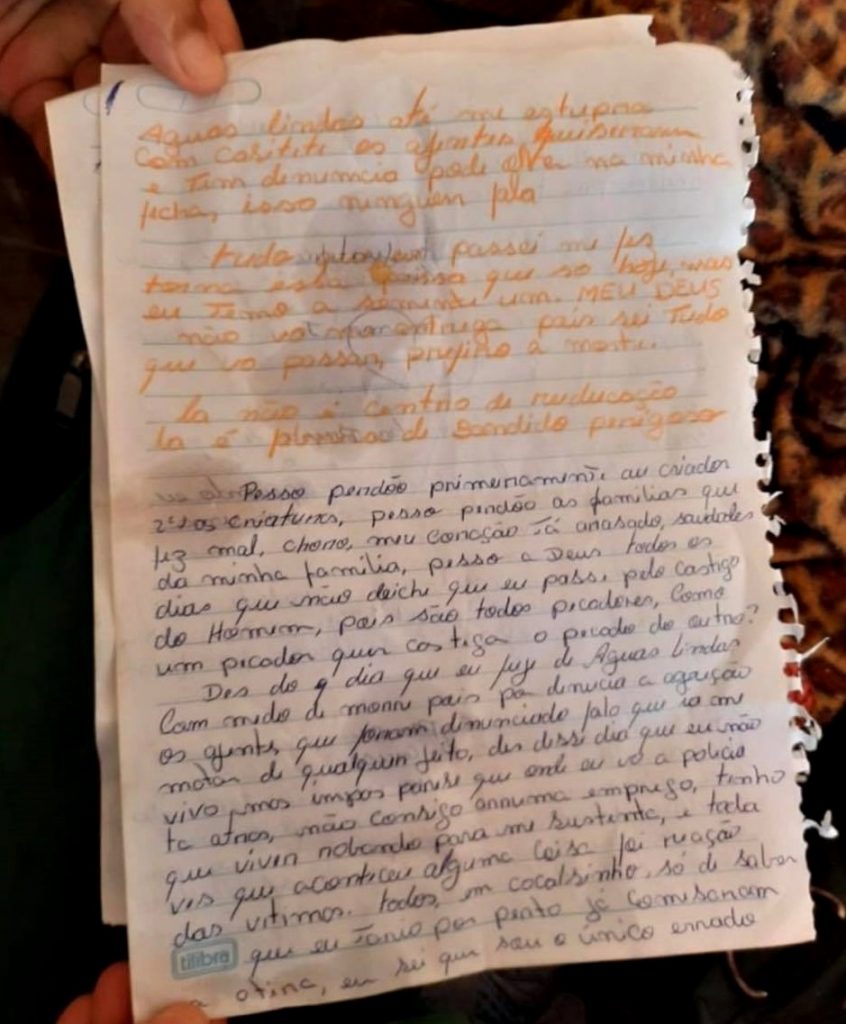 Aguas lindas até me estupra
com casitete os agentes quiseram
e tem denuncia pode olhar na minha
ficha, isso ninguem
tudo passei me fez
torna esta que so hoje, mas
eu Temo a somente um. MEU DEUS
não vol entrega pois sei Tudo
que vo passar, prefiro a morte.
la não é centro de reeducação
la é de Bandido perigoso
Pesso perdão primeramente au criador
2º as criaturas, pesso perdão as familias que
fiz mal, choro, meu coração Tá arrasado, saudades
da minha familia, pesso a Deus todos os
dias que não deiche que eu passe pelo castigo
do Homem, pois são todos pecadores, Como
um pecador quer castiga o pecado do outro?
Des do dia que eu fugi de Aguas lindas
Com medo de morre pois pa denucia a agreção
os agente que foram dinunciado falo que ia me
matar de qualquer jeito, des dessi dia que eu não
vivo, mas que onde eu vo a policia
ta atras, não consigo arruma emprego, tenho
que viver robando para me sustenta, e toda
ves que aconticeu alguma coisa foi reação
das vitimas. todos, em cocalzinho, só di saber
tilibra
que eu Tava por perto já Comesaram
a atira, eu sei que sou o único errado